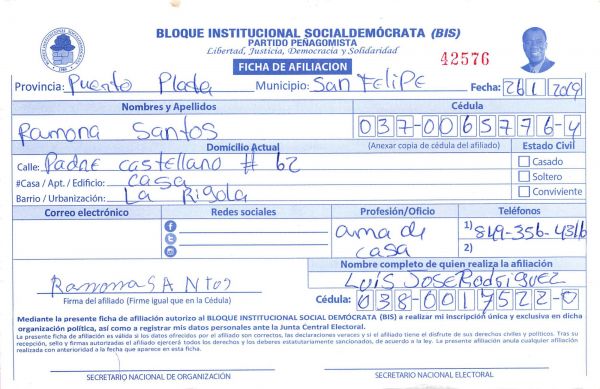 BLOQUE INSTITUCIONAL SOCIALDEMÓCRATA (BIS)
PARTIDO PEÑAGOMISTA
Libertad, Justicia, Democracia y Solidaridad
FICHA DE AFILIACION
42576
Provincia: Puerto Plata Municipio: San FeliPe Fecha: 26 1 2019
Nombres y Apellidos Cédula
Ramona Santos 037-0065776-4
Domicilio Actual (Anexar copia de cédula del afiliado) Estado Civil
Calle: Padre castellano # 62 Casado
#Casa / Apt. / Edificio: casa Soltero
Barrio / Urbanización: La Rigola Conviviente
Correo electrónico Redes sociales Profesión/Oficio Teléfonos
ama de casa
1) 849-356-4316
2)
Nombre completo de quien realiza la afiliación
Ramona SANTos LUIS JOSE RodriGuez
Firma del afiliado (Firme igual que en la Cédula) Cédula: 038-0017522-0
Mediante la presente ficha de afiliación autorizo al BLOQUE INSTITUCIONAL SOCIAL DEMÓCRATA (BIS) a realizar mi inscripción única y exclusiva en dicha
organización política, así como a registrar mis datos personales ante la Junta Central Electoral.
La presente ficha de afiliación es válida si los datos ofrecidos por el afiliado son correctos, las declaraciones veraces y si el afiliado tiene el disfrute de sus derechos civiles y políticos. Tras su
recepción, sello y firmas autorizadas el afiliado ejercerá todos los derechos y los deberes estatutariamente sancionados, de acuerdo a la ley. La presente afiliación anula cualquier afiliación
realizada con anterioridad a la fecha que aparece en esta ficha.
SECRETARIO NACIONAL DE ORGANIZACIÓN SECRETARIO NACIONAL ELECTORAL